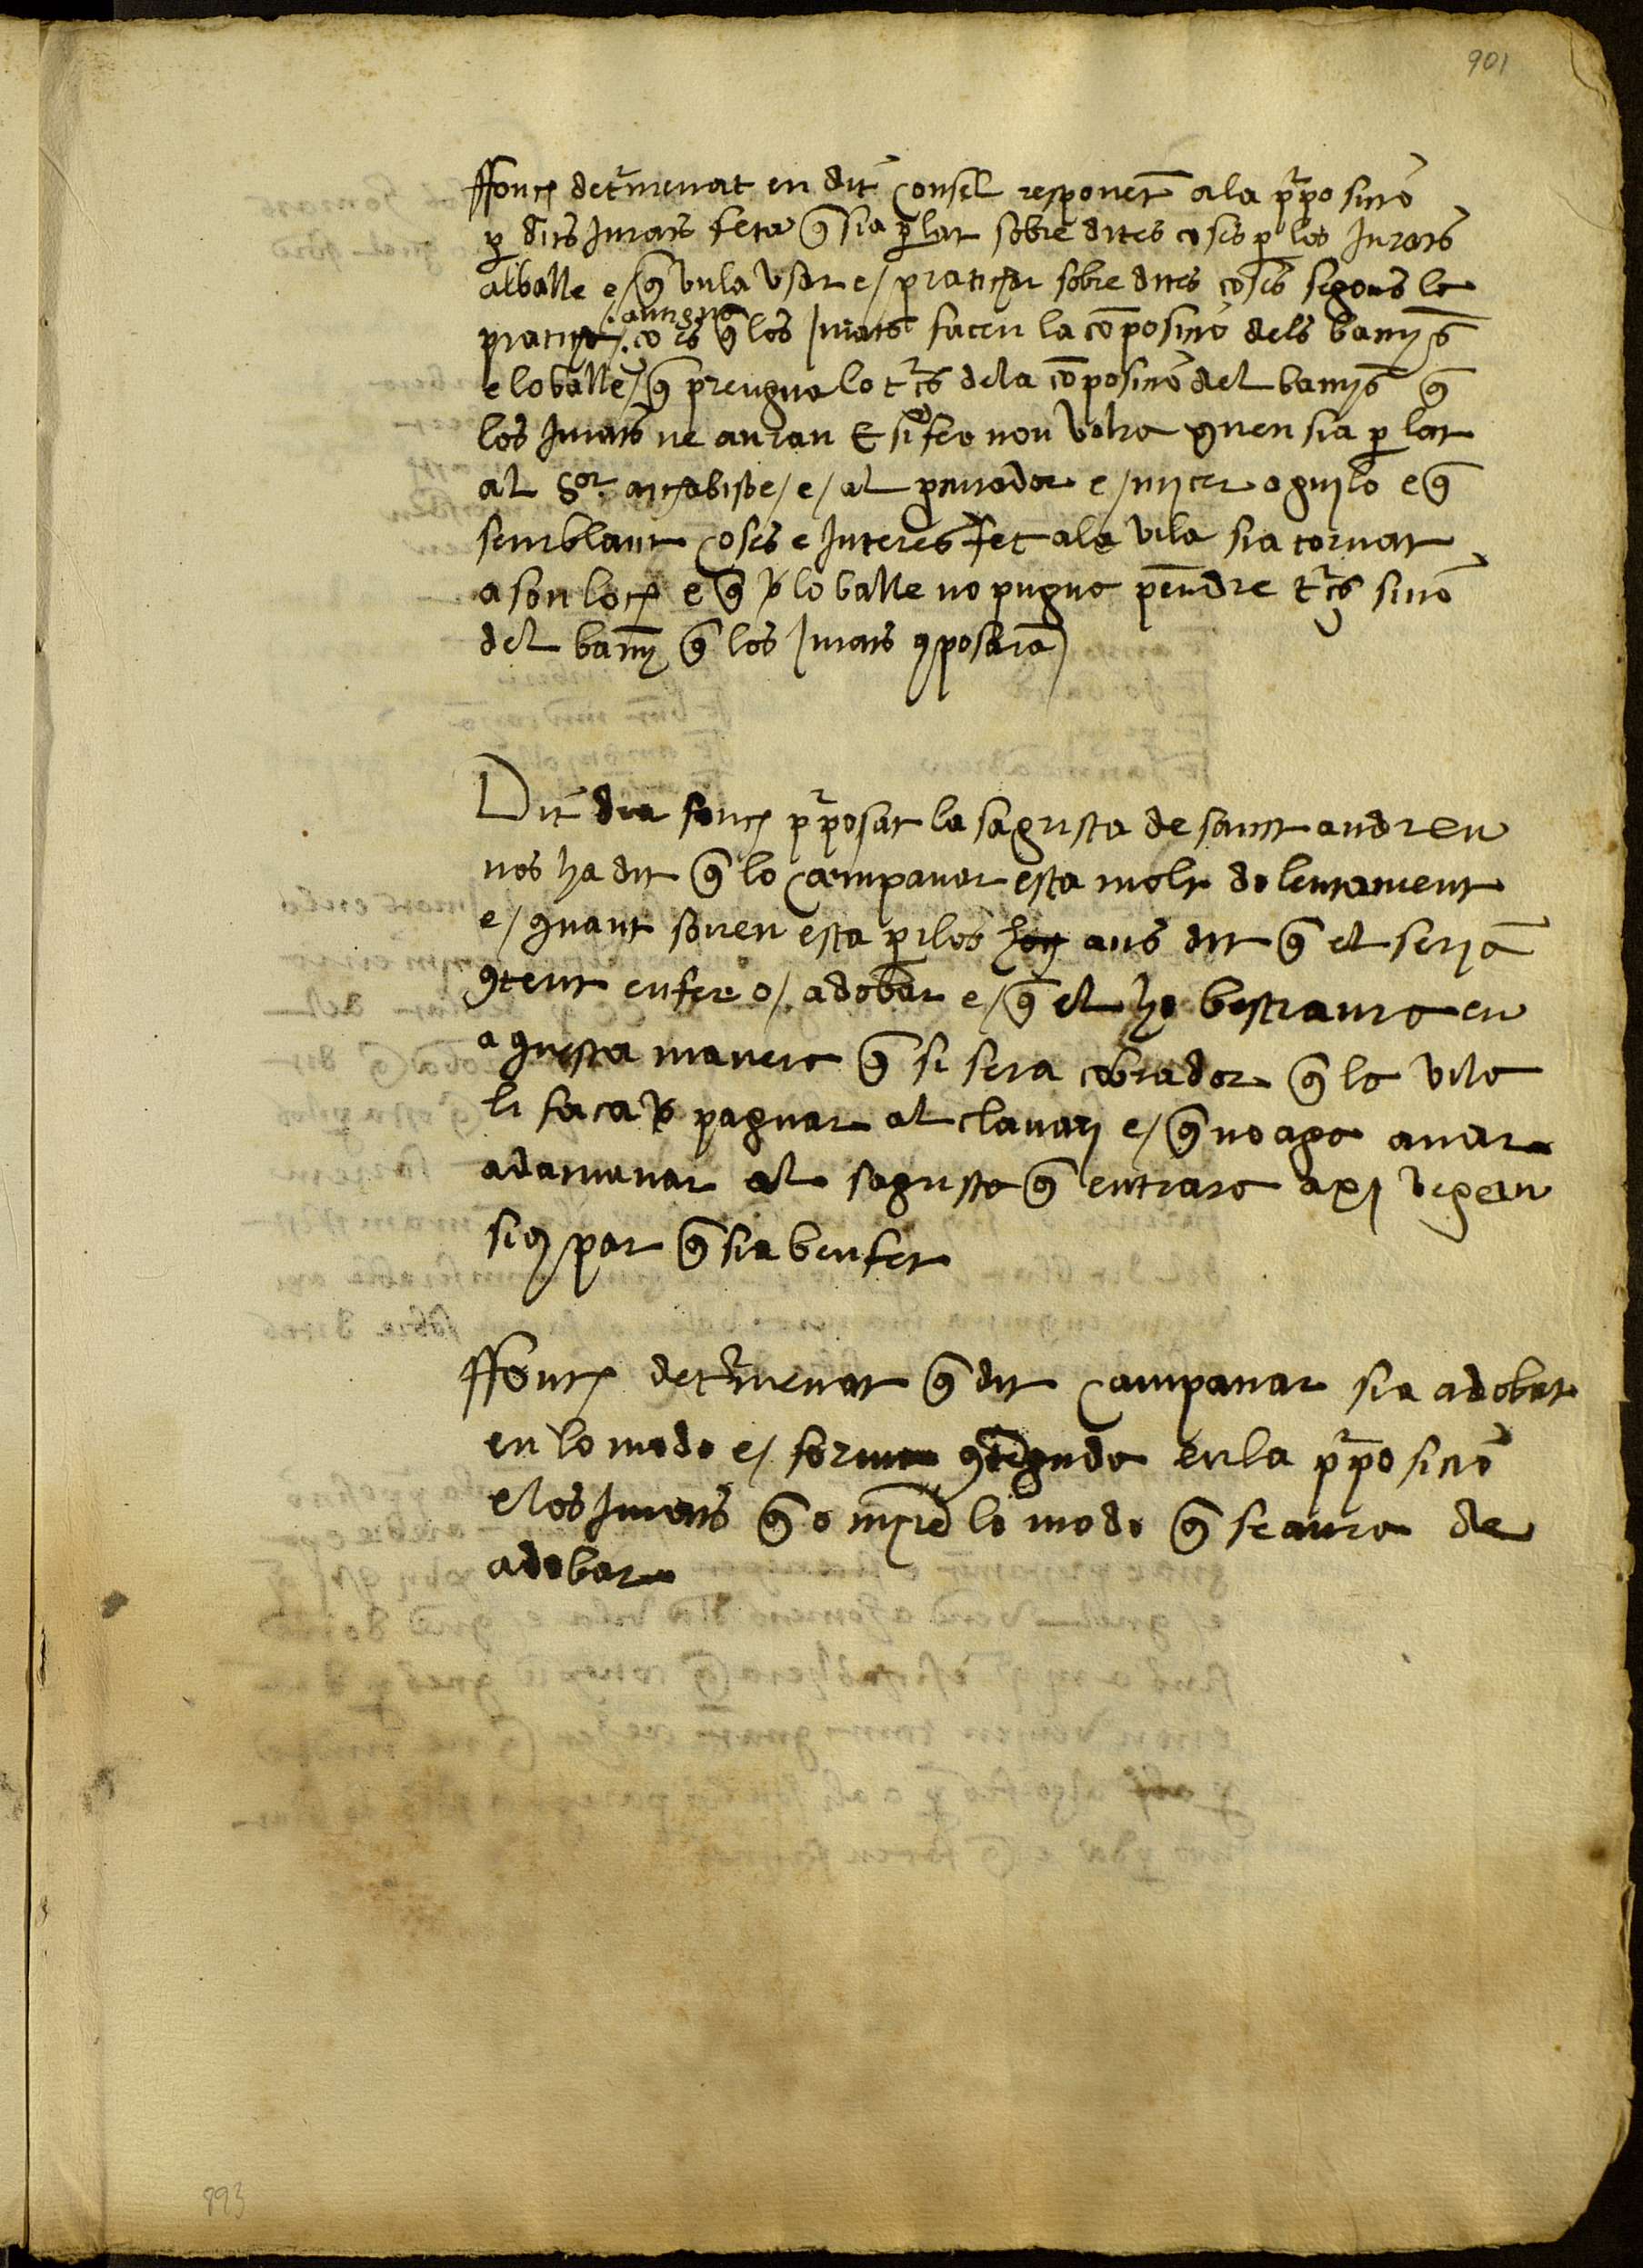 901
ffonch detrmenat en dit consel responet ala prposicio
p dits Jurats feta q sia p lat sobre dites coses p los Jurats
al balle e / q vula vsar e / praticar sobre dites coses segons la
antigua
pratiqua co es q los Jurats facen la coposicio dels banys
e lo balle / q prengua lo trs dela coposicio del banys q
los Jurats ne auran E si feo non volra quen sia p lat
al Sor archabisbe / e / al procurador e / micer aguilo e q
semblant coses e Interes fet ala vila sia tornat
a son loch e q lo balle no pugua pendre trs sino
del bany q los Jurats qposara
Dit dia fonch prposat la sagrista de sanct andreu
nos ha dit q lo campanar esta molt dolentament
e / quant sonen esta p ilos ans dit q el seria
qtent en fer o / adobar e / q el ho bestraura en
aquesta manera q si sera cobrador q la vila
li faca pagar al clavari e / q no aga anar
ademanar al sagrista q entrara axi vegau
sieus par q sia ben fet
ffonch detrmenat q dit campanar sia adobat
en lo modo e / forma qtenguda en la prposicio
e los Jurats q o mire lo modo q se aura de
adobar
893